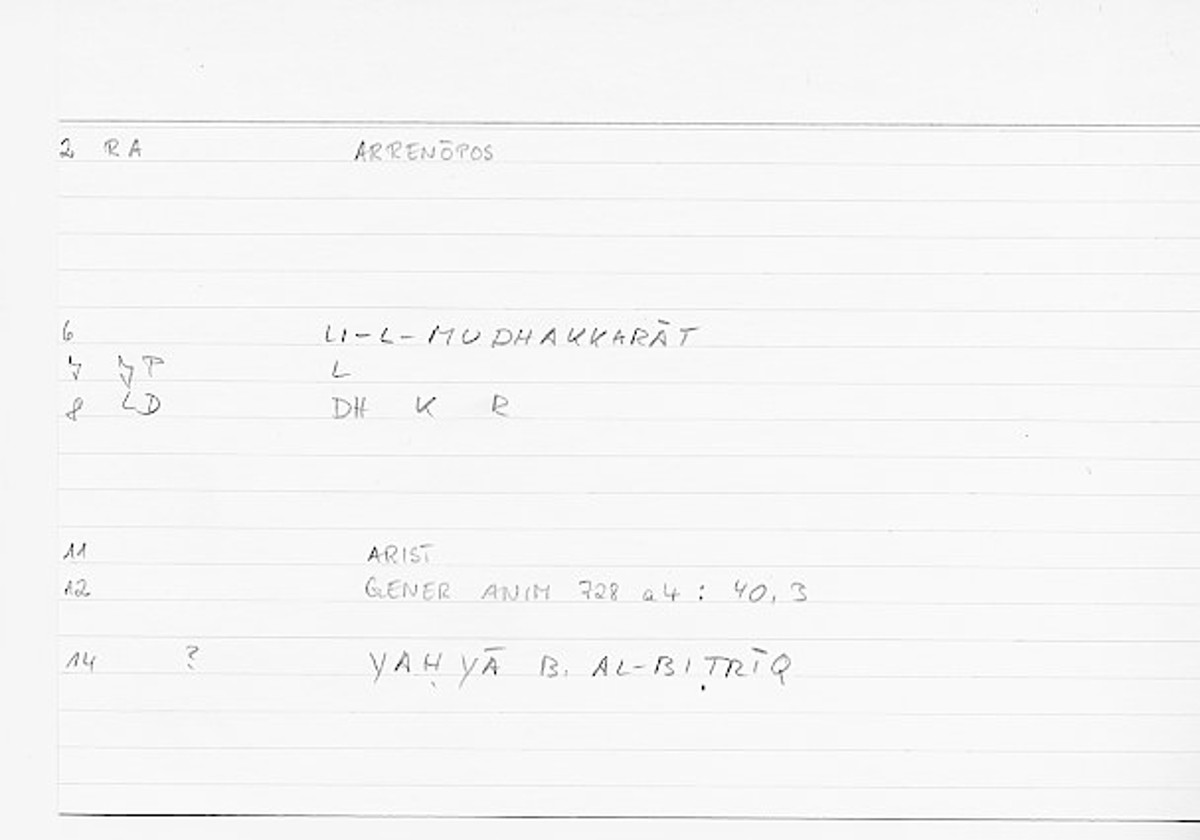 2 RA ARRENŌPOS
6 LI-L-MUDHAKKARĀT
7 JP L
8 LD DH K R
11 ARIST
12 GENER ANIM 728 a4 : 40,3
14 ? YAḤYĀ B. AL-BIṬRĪQ